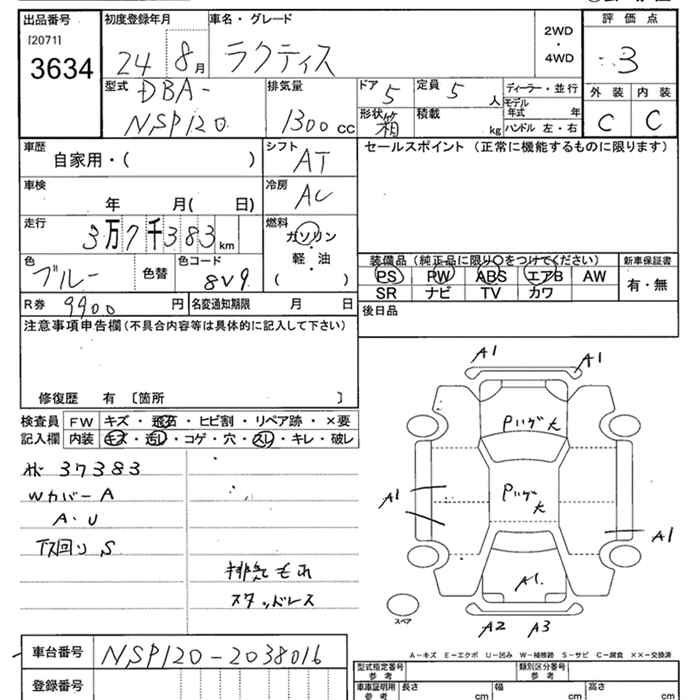 出品番号 初度登録年月 車名・グレード 2WD・4WD 評価点
[2071] 3634 24 8月 ラクティス 3
型式 DBA-NSP120 排気量 1300cc ドア 5 定員 5人 ディーラー・並行
形状 箱 積載 kg モデル年式 年 ハンドル 左・右
外装 C 内装 C
車歴 自家用・( ) シフト AT セールスポイント (正常に機能するものに限ります)
車検 年 月( 日) 冷房 AC
走行 3万7千383km 燃料 ガソリン・軽油 ( )
色 ブルー 色替 色コード 8V9
装備品(純正品に限り○をつけてください) 新車保証書
PS PW ABS エアB AW 有・無
SR ナビ TV カワ
R券 9900円 名変通知期限 月 日 後日品
注意事項申告欄(不具合内容等は具体的に記入して下さい)
修復歴 有 [箇所 ]
検査員 FW キズ・飛石・ヒビ割・リペア跡・×要
記入欄 内装 キズ・汚レ・コゲ・穴・スレ・キレ・破レ
37383
Wカバー A
A・U
下回り S
排気もれ
スタッドレス
A1 A1
Pハゲ大
Pハゲ大
A1 A1
A1
A2 A3
スペア
A-キズ E-エクボ U-凹み W-補修跡 S-サビ C-腐食 ××-交換済
車台番号 NSP120-2038016
登録番号
型式指定番号 参考 類別区分番号 参考
車庫証明用 参考 長さ cm 幅 cm 高さ cm